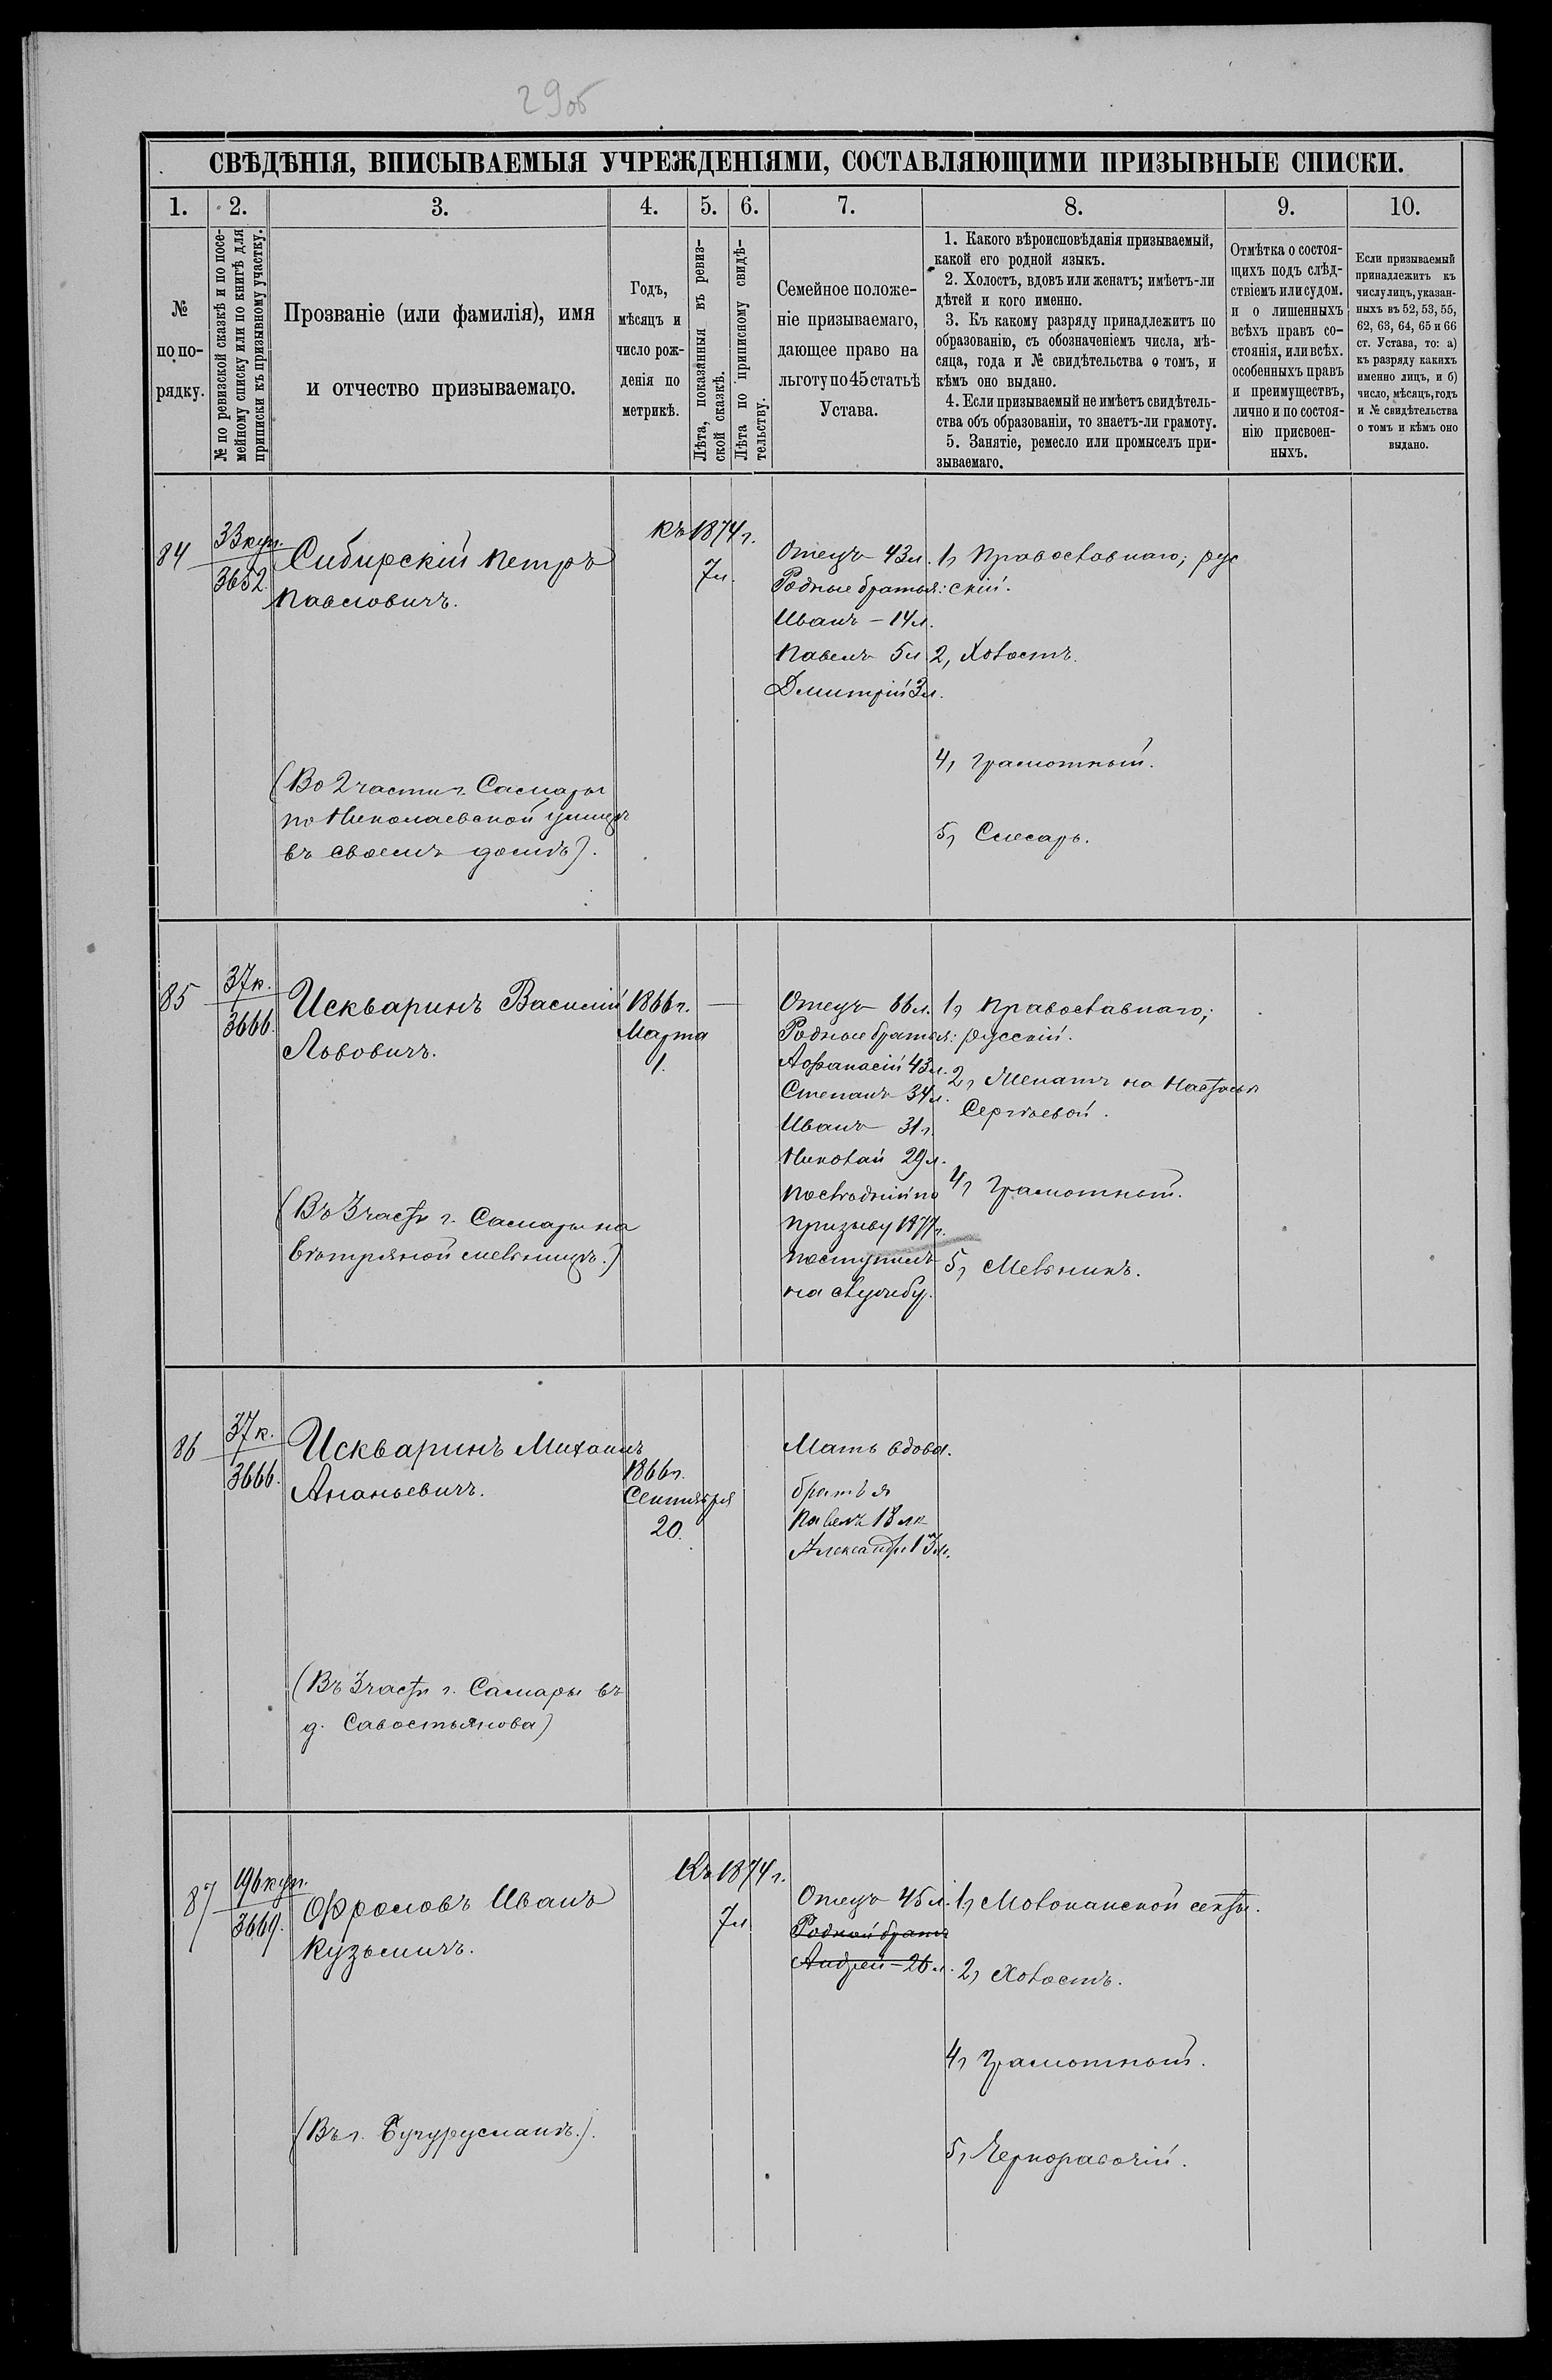 29об
СВѢДѢНІЯ, ВПИСЫВАЕМЫЯ УЧРЕЖДЕНІЯМИ, СОСТАВЛЯЮЩИМИ ПРИЗЫВНЫЕ СПИСКИ.
1. 2. 3. 4. 5. 6. 7. 8. 9. 10.
№
по по-
рядку.
№ по ревизской сказкѣ и по посе-
мейному списку или по книгѣ для
приписки къ призывному участку.
Прозваніе (или фамилія), имя
и отчество призываемаго.
Годъ,
мѣсяцъ и
число рож-
денія по
метрикѣ.
Лѣта, показанныя въ ревиз-
ской сказкѣ.
Лѣта по приписному свидѣ-
тельству.
Семейное положе-
ніе призываемаго,
дающее право на
льготу по 45 статьѣ
Устава.
1. Какого вѣроисповѣданія призываемый,
какой его родной языкъ.
2. Холостъ, вдовъ или женатъ; имѣетъ-ли
дѣтей и кого именно.
3. Къ какому разряду принадлежитъ по
образованію, съ обозначеніемъ числа, мѣ-
сяца, года и № свидѣтельства о томъ, и
кѣмъ оно выдано.
4. Если призываемый не имѣетъ свидѣтель-
ства объ образованіи, то знаетъ-ли грамоту.
5. Занятіе, ремесло или промыселъ при-
зываемаго.
Отмѣтка о состоя-
щихъ подъ слѣд-
ствіемъ или судом.
и о лишенныхъ
всѣхъ правъ со-
стоянія, или всѣх.
особенныхъ правъ
и преимуществъ,
лично и по состоя-
нію присвоен-
ныхъ.
Если призываемый
принадлежитъ къ
числу лицъ, указан-
ныхъ въ 52, 53, 55,
62, 63, 64, 65 и 66
ст. Устава, то: а)
къ разряду какихъ
именно лицъ, и б)
число, мѣсяцъ, годъ
и № свидѣтельства
о томъ и кѣмъ оно
выдано.
84
33 куп.
3652
Сибирскій Петръ
Павловичъ.
(Во 2 части г. Самары
по Николаевской улицѣ
въ своемъ домѣ).
Къ 1874 г.
7 л.
Отецъ 43 л.
Родные братья:
Иванъ – 14 л.
Павелъ 5 л.
Дмитрій 3 л.
1, Православнаго; рус
скій.
2, Холостъ.
4, Грамотный.
5, Слесарь.
85
37 к.
3666.
Искваринъ Василій
Львовичъ.
(Въ 3 части г. Самары на
вѣтряной мельницѣ.)
1866 г.
Марта
1.
Отецъ 66 л.
Родные братья:
Афанасій 43 л.
Степанъ 34 л.
Иванъ 31 г.
Николай 29 л.
Послѣдній по
призыву 1877 г.
поступилъ
на службу.
1, Православнаго;
русскій.
2, Женатъ на Настасьѣ
Сергѣевой.
4, Грамотный.
5, Мельникъ.
86
37 к.
3666.
Искваринъ Михаилъ
Ананьевичъ.
(Въ 3 части г. Самары въ
д. Савостьянова)
1866 г.
Сентября
20.
Мать вдова.
братья
Павелъ 18 л
Александръ 13 л.
87
196 куп.
3669.
Фроловъ Иванъ
Кузьмичъ.
(Въ г. Бугурусланѣ.).
Къ 1874 г.
7 л.
Отецъ 45 л.
Родной братъ
Андрей – 26 л.
1, Молоканской секты.
2, Холостъ.
4, Грамотный.
5, Чернорабочій.